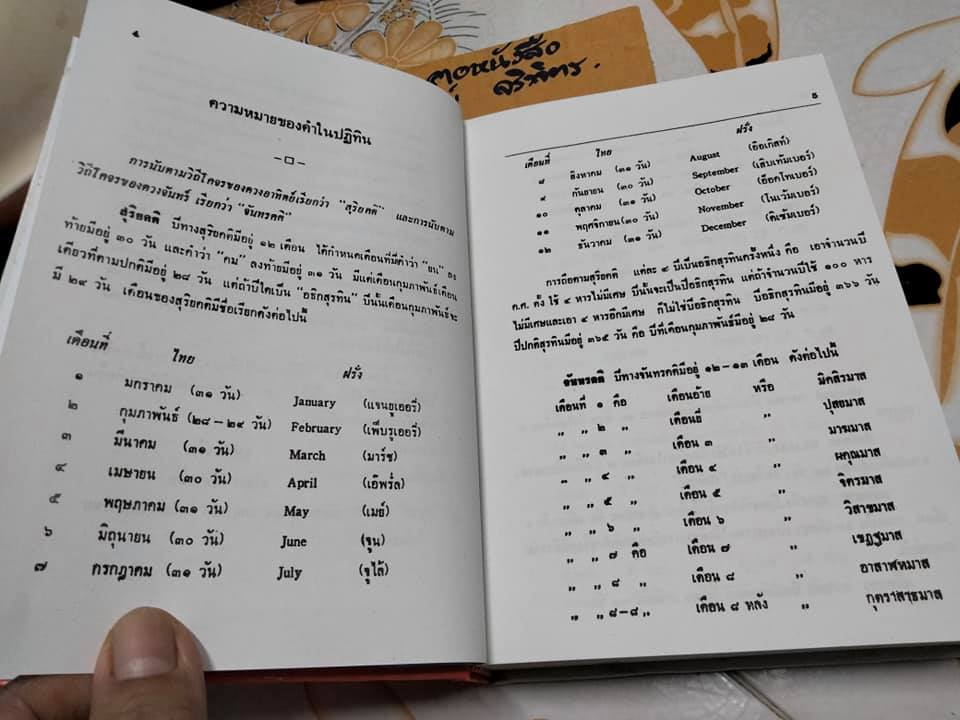 ๔
ความหมายของคำในปฏิทิน
การนับตามวิถีโคจรของดวงอาทิตย์เรียกว่า "สุริยคติ" และการนับตาม
วิถีโคจรของดวงจันทร์ เรียกว่า "จันทรคติ"
สุริยคติ ปีทางสุริยคติมีอยู่ ๑๒ เดือน ได้กำหนดเดือนที่มีคำว่า "ยน" ลง
ท้ายมีอยู่ ๓๐ วัน และคำว่า "คม" ลงท้ายมีอยู่ ๓๑ วัน มีแต่เดือนกุมภาพันธ์เดือน
เดียวที่ตามปกติมีอยู่ ๒๘ วัน แต่ถ้าปีใดเป็น "อธิกสุรทิน" ปีนั้นเดือนกุมภาพันธ์จะ
มี ๒๙ วัน เดือนของสุริยคติมีชื่อเรียกดังต่อไปนี้
เดือนที่ ไทย ฝรั่ง
๑ มกราคม (๓๑ วัน) January (แจนยุเออรี่)
๒ กุมภาพันธ์ (๒๘ – ๒๙ วัน) February (เฟ็บรุเออรี่)
๓ มีนาคม (๓๑ วัน) March (มาร์ช)
๔ เมษายน (๓๐ วัน) April (เอ๊พร์ล)
๕ พฤษภาคม (๓๑ วัน) May (เมย์)
๖ มิถุนายน (๓๐ วัน) June (จูน)
๗ กรกฎาคม (๓๑ วัน) July (จูไล้)
ฅอหนังสือ
จริงิตร.
๕
เดือนที่ ไทย ฝรั่ง
๘ สิงหาคม (๓๑ วัน) August (อ๊อเกิสท์)
๙ กันยายน (๓๐ วัน) September (เส็บเท้มเบอร์)
๑๐ ตุลาคม (๓๑ วัน) October (อ๊อคโทเบอร์)
๑๑ พฤศจิกายน (๓๐ วัน) November (โนเว้มเบอร์)
๑๒ ธันวาคม (๓๑ วัน) December (ดีเซ้มเบอร์)
การถือตามสุริยคติ แต่ละ ๔ ปีเป็นอธิกสุรทินครั้งหนึ่ง คือ เอาจำนวนปี
ค.ศ. ตั้ง ใช้ ๔ หารไม่มีเศษ ปีนั้นจะเป็นปีอธิกสุรทิน แต่ถ้าจำนวนปีใช้ ๑๐๐ หาร
ไม่มีเศษและเอา ๔ หารอีกมีเศษ ก็ไม่ใช่ปีอธิกสุรทิน ปีอธิกสุรทินมีอยู่ ๓๖๖ วัน
ปีปกติสุรทินมีอยู่ ๓๖๕ วัน คือ ปีที่เดือนกุมภาพันธ์มีอยู่ ๒๘ วัน
จันทรคติ ปีทางจันทรคติมีอยู่ ๑๒–๑๓ เดือน ดังต่อไปนี้
เดือนที่ ๑ คือ เดือนอ้าย หรือ มิคสิรมาส
„ „ ๒ „ เดือนยี่ „ ปุสยมาส
„ „ ๓ „ เดือน ๓ „ มาฆมาส
„ „ ๔ „ เดือน ๔ „ ผคุณมาส
„ „ ๕ „ เดือน ๕ „ จิตรมาส
„ „ ๖ „ เดือน ๖ „ วิสาขมาส
„ „ ๗ คือ เดือน ๗ „ เชฏฐมาส
„ „ ๘ „ เดือน ๘ „ อาสาฬหมาส
„ „ ๘–๘ „ เดือน ๘ หลัง „ กุตราสาธมาส